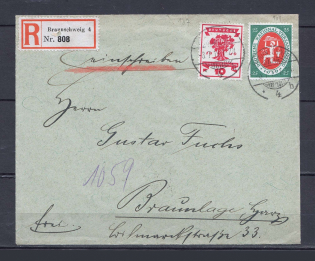 Braunschweig 4
R
Nr. 808
Einschreiben
10
Gustav Fuchs
1059
Braunlage, Harz
frei.
33.